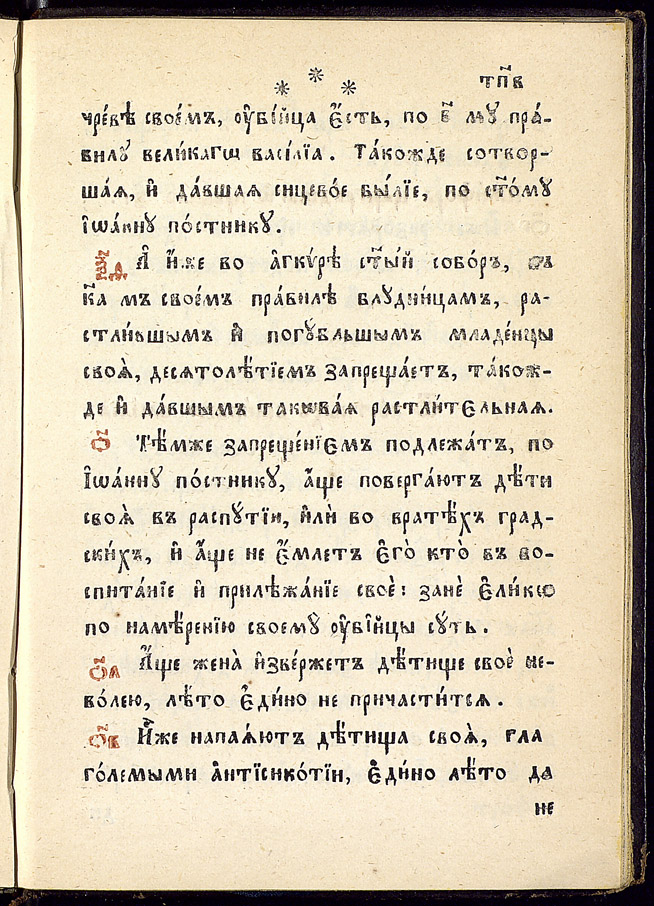 тп҃в
чре́вѣ свое́мъ, ᲂу҆бі́йца є҆́сть, по є҃ мꙋ пра́-
вилꙋ вели́кагѡ васі́лїа. Та́кожде сотвор-
ша́ѧ, и҆ да́вшаѧ сицево́е бы́лїе, по ст҃о́мꙋ
і҆ѡа́ннꙋ по́стникꙋ.
А҆ и҆́же во а҆гкѵ́рѣ ст҃ы́й собо́ръ, въ
к҃а мъ свое́мъ пра́вилѣ блꙋдни́цамъ, ра-
стли́вшымъ и҆ погꙋ́бльшымъ младе́нцы
своѧ̀, десѧтолѣ́тїемъ запреща́етъ, та́кож-
де и҆ да́вшымъ такѡва́ѧ растли́тєльнаѧ.
о҃ Тѣ́мже запреще́нїємъ подлежа́тъ, по
і҆ѡа́ннꙋ по́стникꙋ, а҆́ще поверга́ютъ дѣ́ти
своѧ̀ въ распꙋ́тїи, и҆лѝ во вратѣ́хъ град-
ски́хъ, и҆ а҆́ще не є҆́млетъ є҆го̀ кто̀ въ во-
спита́нїе и҆ прилѣжа́нїе своѐ: занѐ є҆ли́кѡ
по намѣ́ренїю своемꙋ̀ ᲂу҆бі́йцы сꙋ́ть.
о҃а А҆́ще жена̀ и҆зве́ржетъ дѣ́тище своѐ не-
во́лею, лѣ́то є҆ди́но не причасти́тсѧ.
о҃в И҆̀же напаѧ́ютъ дѣ́тища своѧ̀, гла
го́лемыми а҆нтїсико́тїи, є҆ди́но лѣ́то да
не